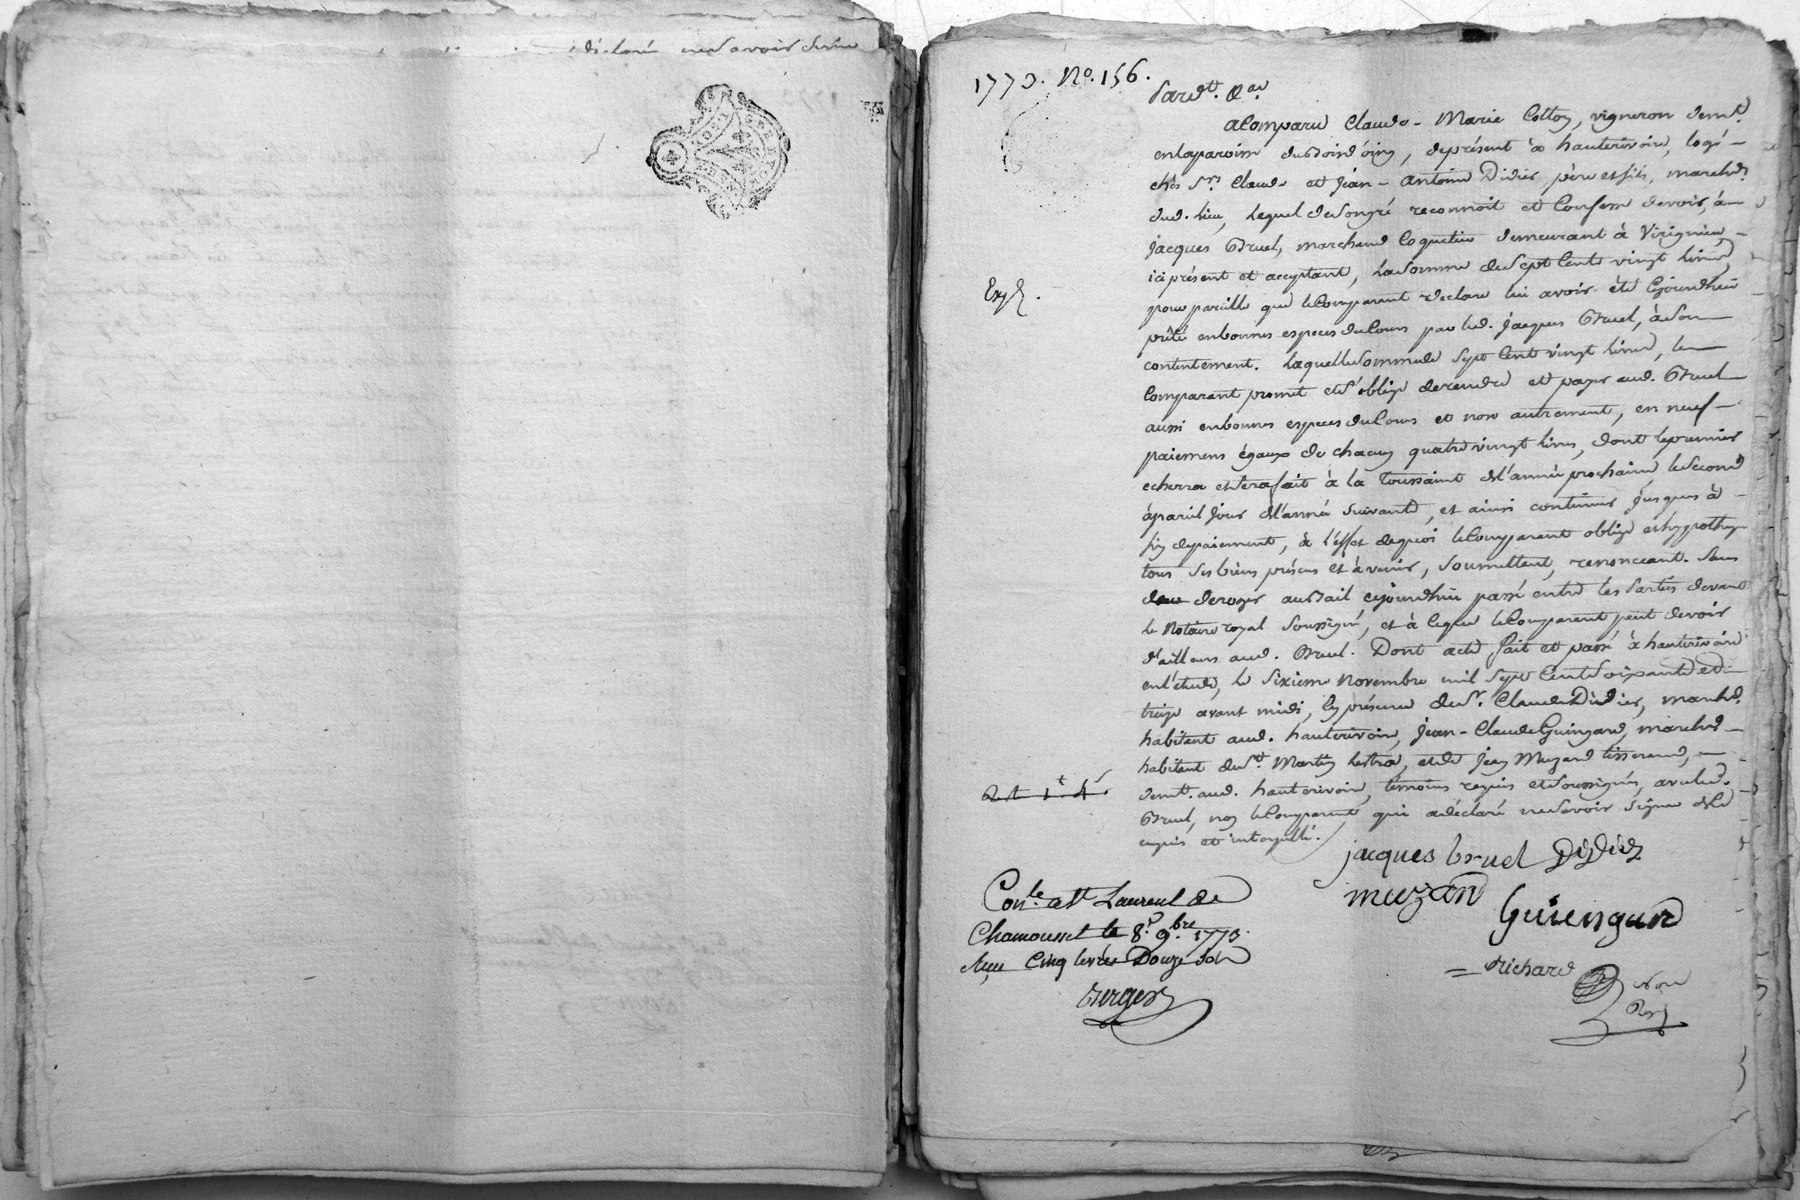 déclaré ne savoir signer
1773. No. 156.
Pardt. &a.
a Comparu Claude-Marie Cotton, vigneron demt.
en la paroisse du bois d'oing, de présent à hauterivoire, logé
chés Srs. Claude et Jean-Antoine Didier, père et fils, marchds.
dud. lieu, lequel de son gré reconnoit et Confesse devoir, à
Jacques Bruel, marchand Coquetier demeurant à Virignieu,
ici présent et acceptant, la somme de sept Cents vingt livres,
pour pareille que le Comparant déclare lui avoir été Cejourdhui
Exp.
prêté en bonnes especes du Cours par led. Jacques Bruel, à son
contentement. Laquelle somme de sept Cent vingt livres, le
Comparant promet et s'oblige de rendre et payer aud. Bruel
aussi en bonnes especes du Cours et non autrement, en neuf
paiemens égaux de chacun quatre vingt livres, dont le premier
echerra et sera fait à la Toussaint de l'année prochaine, le second
à pareil jour de l'année suivante, et ainsi continuer jusques à
fin de paiement, à l'effet de quoi le Comparant oblige et hypotheque
tous ses biens présens et à venir, soumettant, renonceant. Sans
deroger au bail cejourdhui passé entre les Parties devant
le Notaire royal soussigné, et à ce que le Comparant peut devoir
d'ailleurs aud. Bruel. Dont acte fait et passé à hauterivoire
en l'étude, le sixieme Novembre mil sept Cent soixante et
treize avant midi, en présence de Sr. Claude Didier, marchd.
habitant aud. hauterivoire, Jean-Claude Guingard, marchd.
habitant de St. Martin Lestra, et de Jean Muzard tisserand,
demt. aud. hauterivoire, témoins requis et soussignés, avec led.
Bruel, non le Comparant qui a déclaré ne savoir signer de ce
enquis et interpellé.
jacques bruel Didier
muzard
Guiengard
richard
Nore
Roy
Conle. att Laurent de
Chamousset le 8e. 9bre 1773.
Reçu Cinq livres Douze sols
Berger